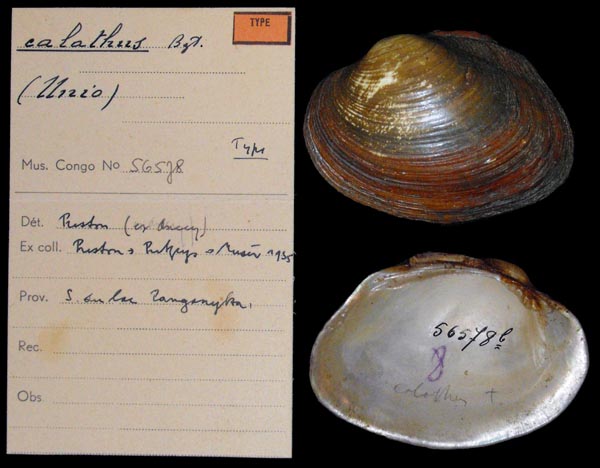 TYPE
calathus Bgt.
(Unio)
Type
Mus. Congo No 56578
Dét. Preston (ex Ancey)
Ex coll. Preston > Putzeys > Musée 1935
Prov. S. du lac Tanganyka.
Rec.
Obs.
56578b
8
calathus +